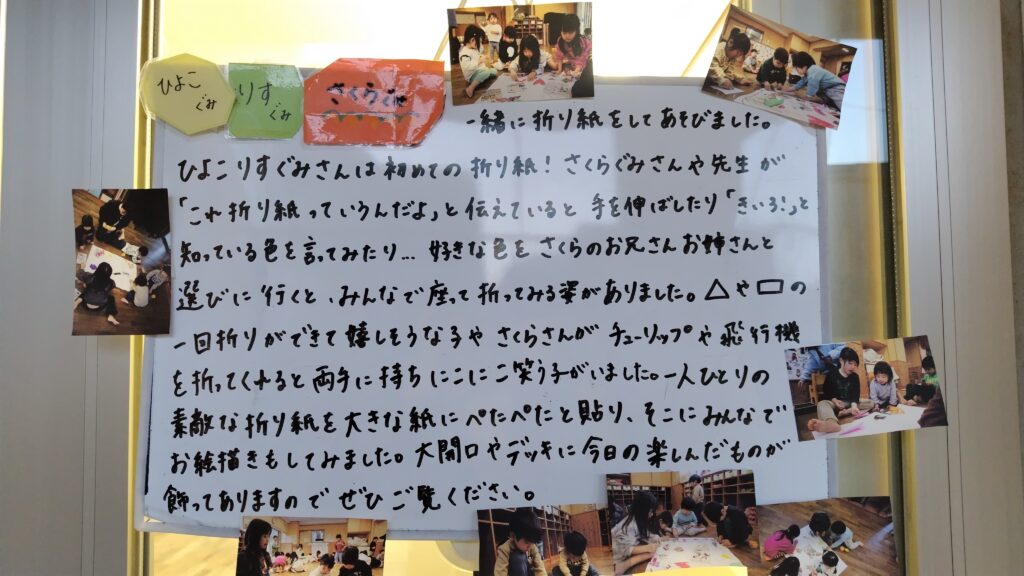 ひよこぐみ
りすぐみ
さくらぐみ
一緒に折り紙をしてあそびました。
ひよこりすぐみさんは初めての折り紙！さくらぐみさんや先生が
「これ折り紙っていうんだよ」と伝えていると手を伸ばしたり「きいろ！」と
知っている色を言ってみたり…好きな色をさくらのお兄さんお姉さんと
選びに行くと、みんなで座って折ってみる姿がありました。△や□の
一回折りができて嬉しそうな子やさくらさんがチューリップや飛行機
を折ってくれると両手に持ちにこにこ笑う子がいました。一人ひとりの
素敵な折り紙を大きな紙にぺたぺたと貼り、そこにみんなで
お絵描きもしてみました。大開口やデッキに今日の楽しんだものが
飾ってありますのでぜひご覧ください。